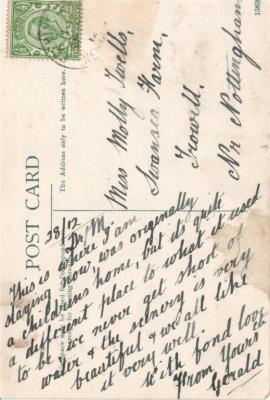 POST CARD
The Address only to be written here.
Miss Molly Twells,
Swansea Farm,
Trowell.
Nr Nottingham
28/12
Dr M
This is where I am
staying now, was originally
a childrens home, but its quite
a different place to what it used
to be. We never get short of
water & the scenery is very
beautiful & we all like
it very well.
With fond love
From Yours
Gerald